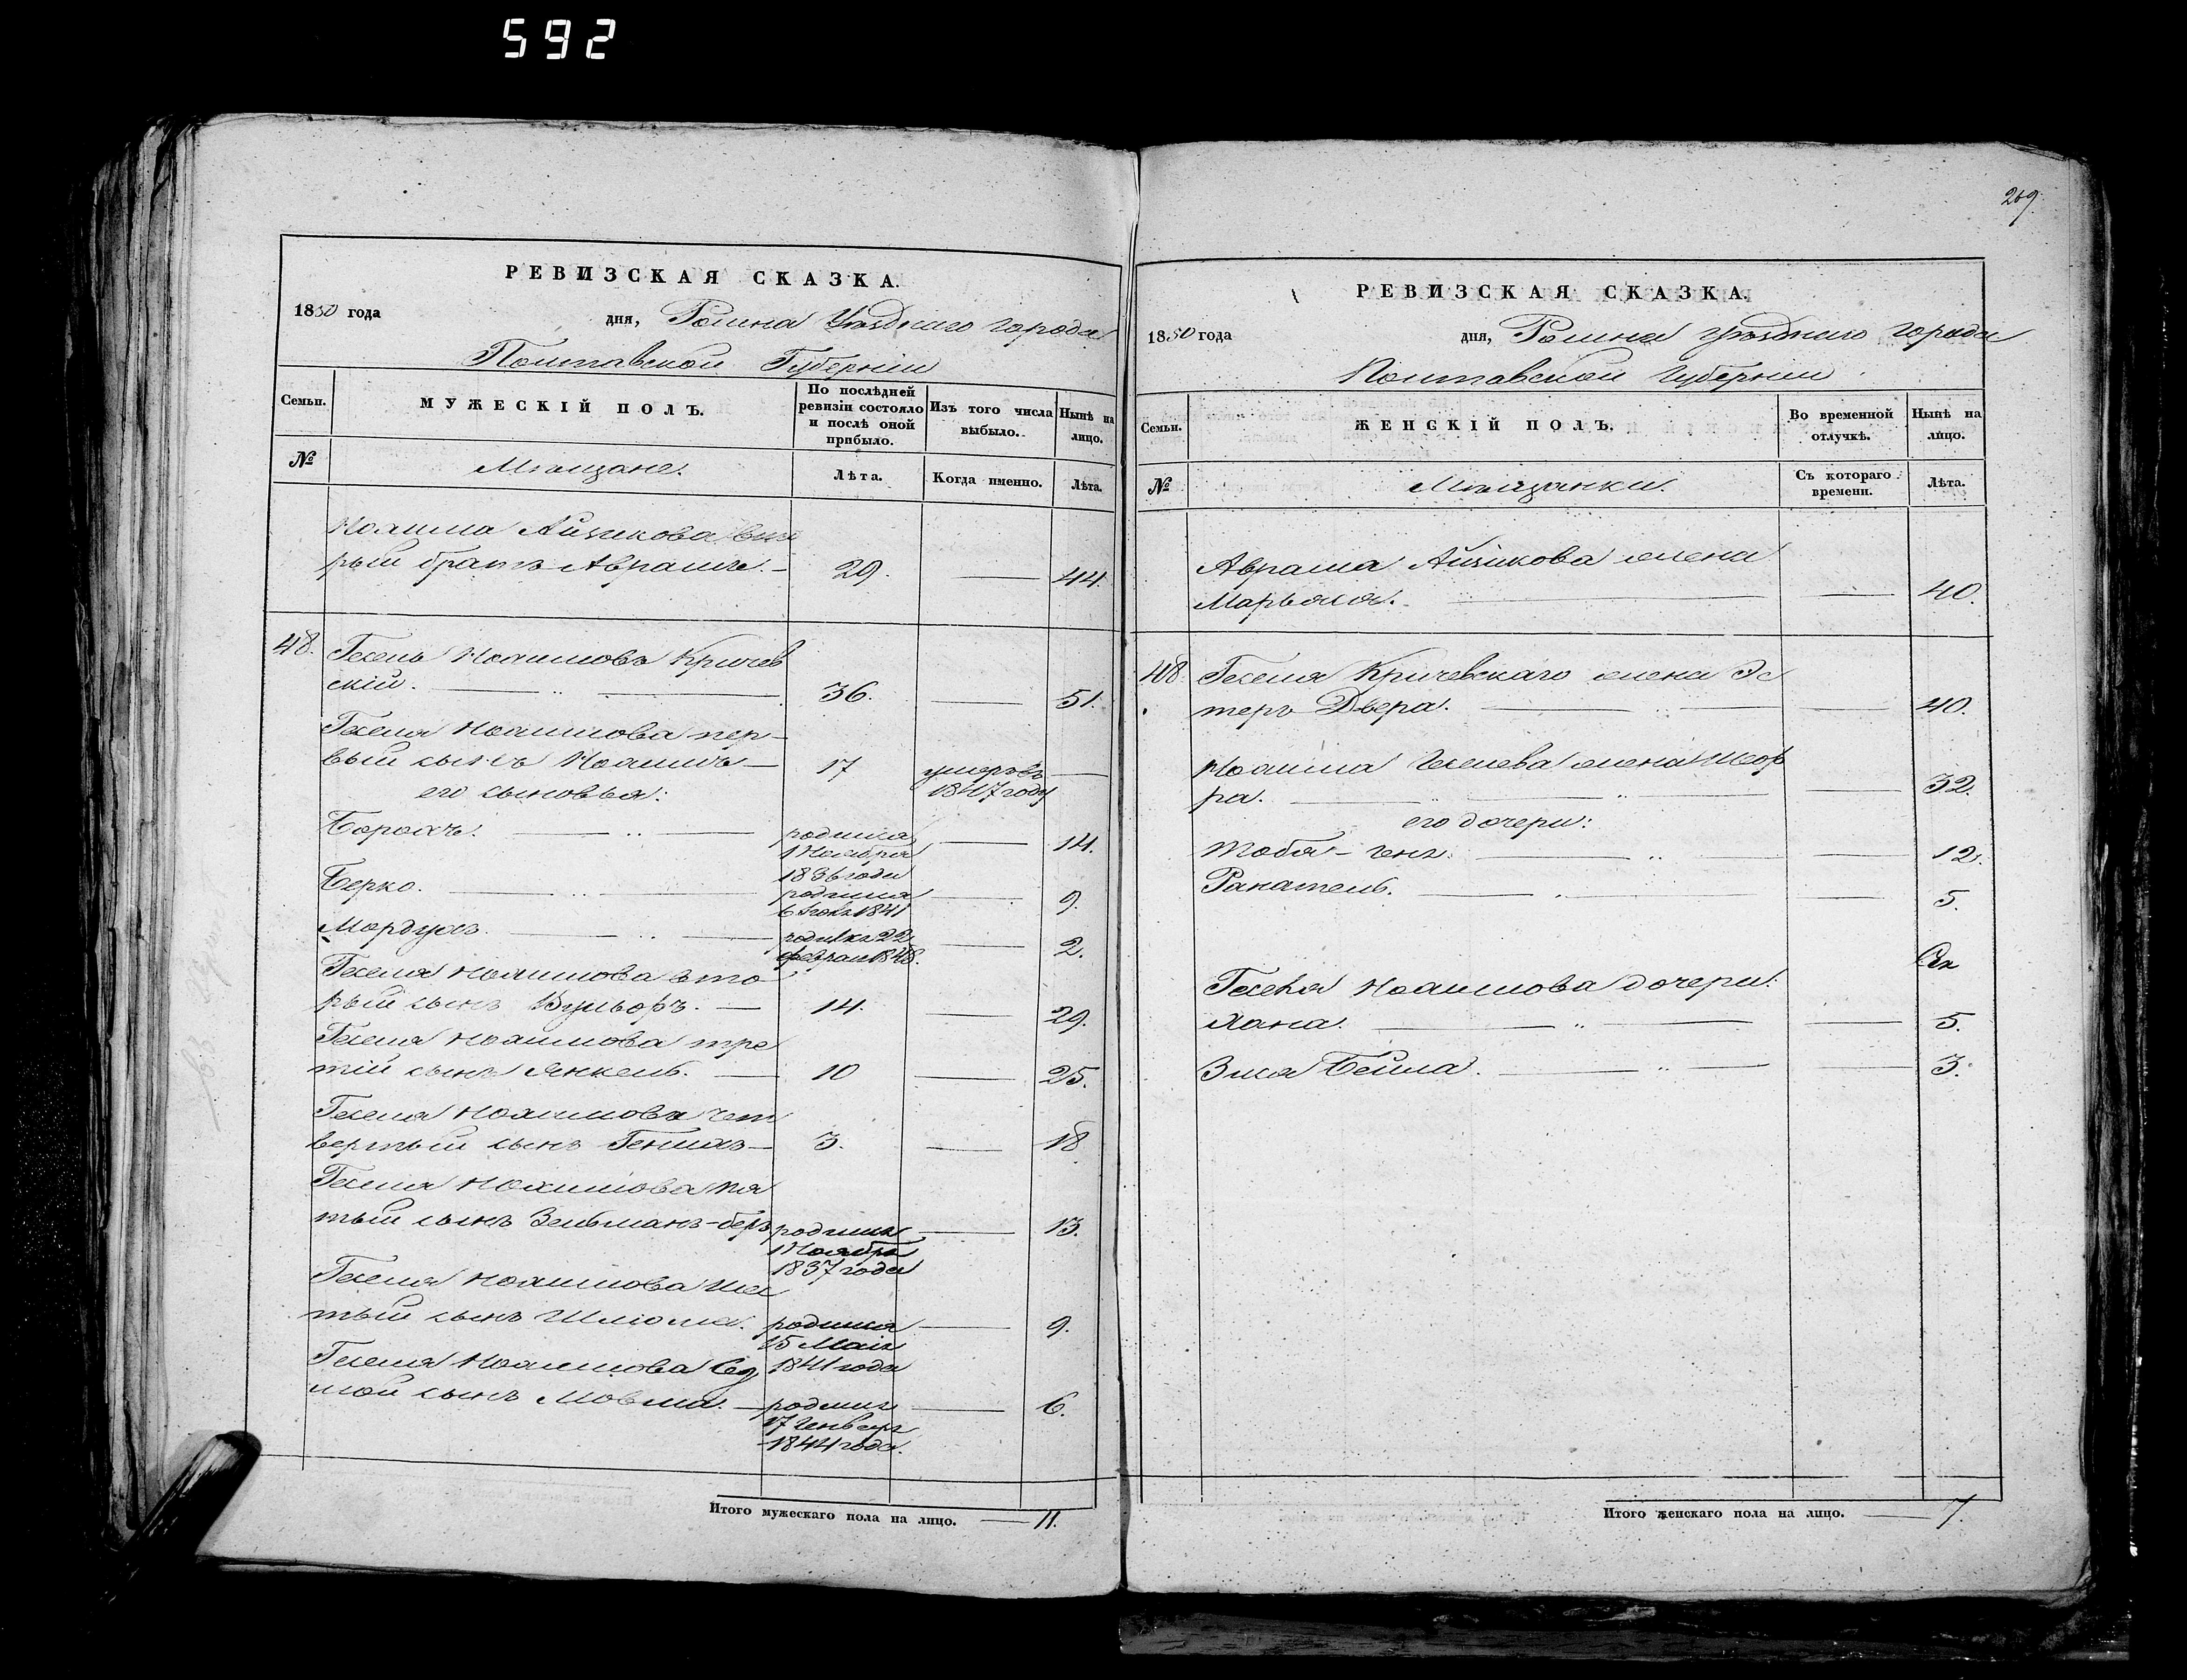 592
РЕВИЗСКАЯ СКАЗКА.
1850 года дня, Ромна Уѣзднаго города
Полтавской Губерніи
Семьи. МУЖЕСКІЙ ПОЛЪ. По послѣдней ревизіи состояло и послѣ оной прибыло. Изъ того числа выбыло. Нынѣ на лицо.
№ Мѣщане. Лѣта. Когда именно. Лѣта.
Айзикова вто
рый братъ Аврамъ. 29. 44.
48. Гесель Кричев
скій. 36. 51.
Геселя пер
вый сынъ 17 умеръ въ
его сыновья: 1847 году
Борохъ. родился 14.
1 Ноября
1836 года
Берко. родился 9.
1841
Мордухъ. родился 22 2.
феврал 1848.
Геселя вто
рый сынъ 14. 29.
Геселя тре
тій сынъ Янкель. 10 25.
Геселя чет
вертый сынъ 3. 18
Геселя пя
тый сынъ Зельманъ-беръ родился 13.
1 Ноября
1837 года
Геселя шес
тый сынъ Шлюма. родился 9.
15 Маія
Геселя сед 1841 года
мой сынъ Мовша. родился 6.
17 Генваря
1844 года.
Итого мужескаго пола на лицо. 11.
269
РЕВИЗСКАЯ СКАЗКА.
1850 года дня, Ромна уѣзднаго города
Полтавской Губерніи
Семьи. ЖЕНСКІЙ ПОЛЪ. Во временной отлучкѣ. Нынѣ на лицо.
№ Мѣщанки. Съ котораго времени. Лѣта.
Аврама Айзикова жена
Марьяся. 40.
48. Геселя Кричевскаго жена Эс
теръ Двера. 40.
Геселева жена
ра. 32.
его дочери:
12.
5.
Геселя дочери:
Хана. 5.
Бейла. 3.
Итого женскаго пола на лицо. 7.